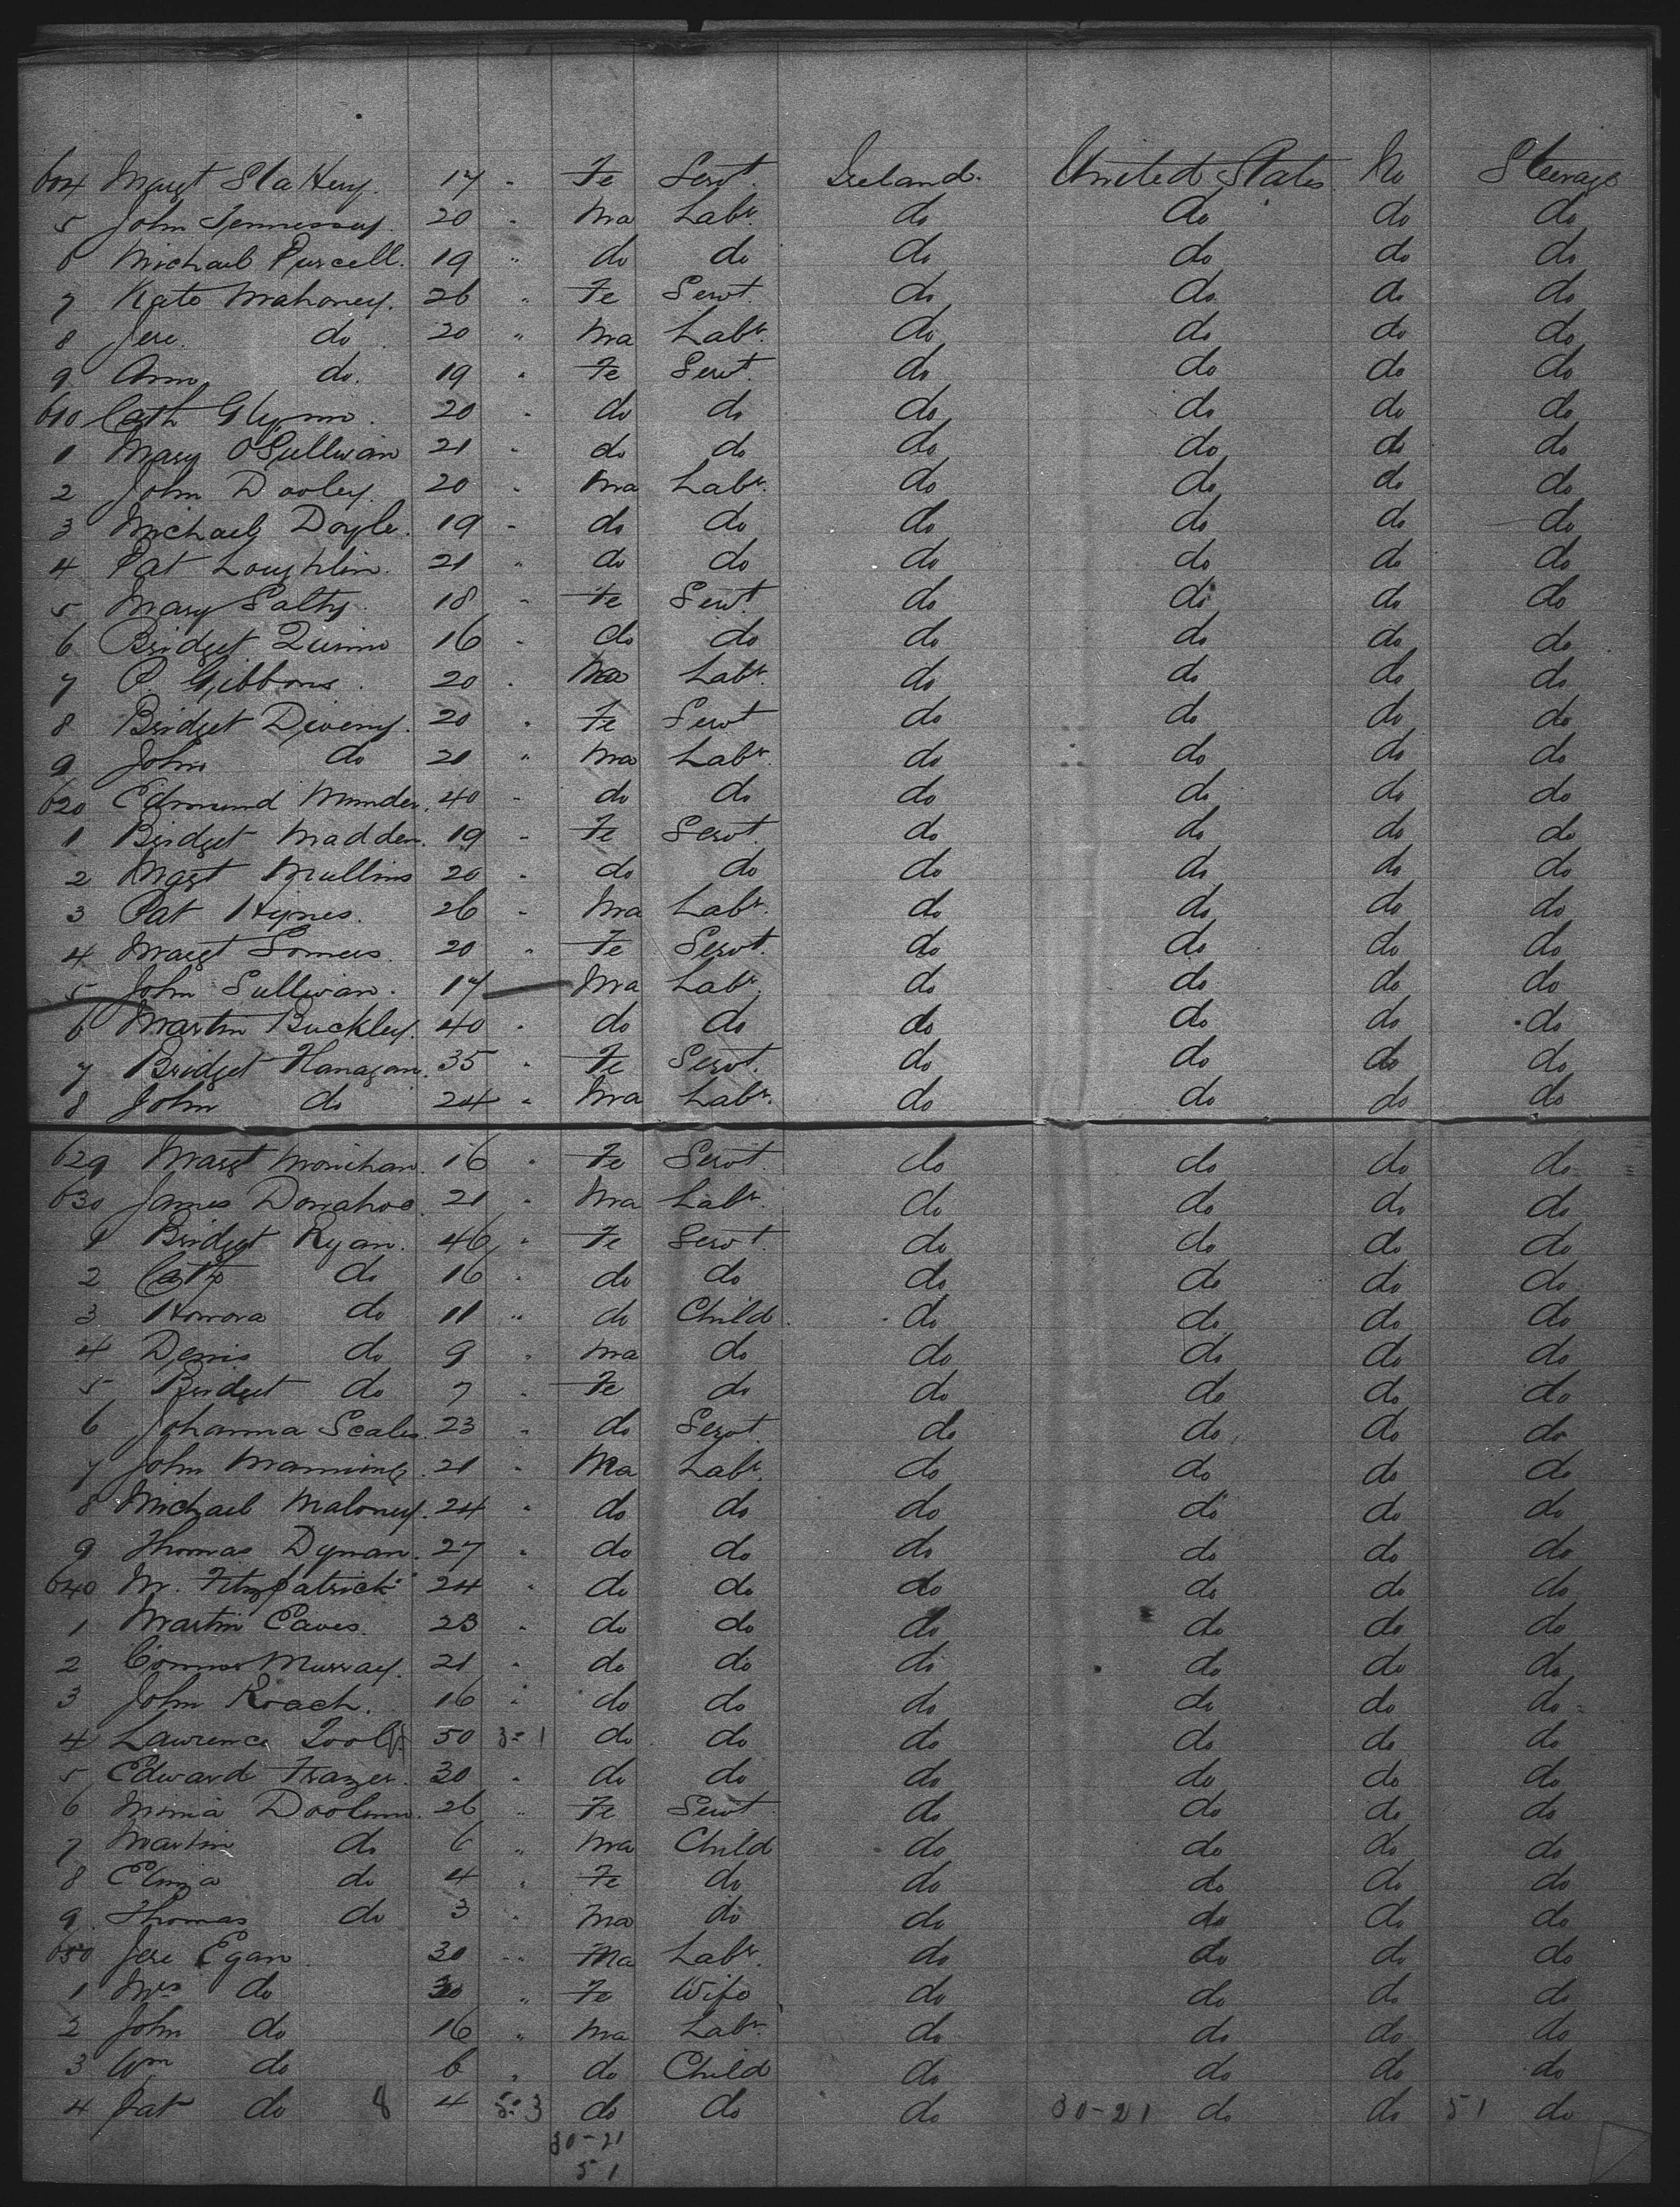 604 Margt Slattery. 17 - Fe Servt. Ireland. United States. No Steerage
5 John Fennessey. 20 " Ma Labr. do do do do
6 Michael Purcell. 19 " do do do do do do
7 Kate Mahoney. 26 " Fe Servt. do do do do
8 Jere. do 20 " Ma Labr. do do do do
9 Ann do. 19 " Fe Servt. do do do do
610 Cath Glynn. 20 " do do do do do do
1 Mary O'Sullivan 21 " do do do do do do
2 John Dooley. 20 " Ma Labr. do do do do
3 Michael Doyle. 19 - do do do do do do
4 Pat Loughlin. 21 " do do do do do do
5 Mary 18 - Fe Servt. do do do do
6 Bridget Quinn 16 - do do do do do do
7 P. Gibbons. 20 . Ma Labr. do do do do
8 Bridget Diveny. 20 " Fe Servt do do do do
9 John do 21 " Ma Labr. do do do do
620 Edmund 40 - do do do do do do
1 Bridget Madden. 19 - Fe Servt. do do do do
2 Margt Mullins 20 - do do do do do do
3 Pat Hynes. 26 - Ma Labr. do do do do
4 Margt Somers. 20 " Fe Servt. do do do do
5 John Sullivan. 17 Ma Labr. do do do do
6 Martin Buckley. 40 " do do do do do do
7 Bridget Flanagan. 35 " Fe Servt. do do do do
8 John do 24 " Ma Labr. do do do do
629 Margt Monihan. 16 " Fe Servt. do do do do
630 James Donahoe. 21 " Ma Labr. do do do do
1 Bridget Ryan. 46 " Fe Servt. do do do do
2 Cath do 16 " do do do do do do
3 Honora do 11 " do Child. do do do do
4 Denis do 9 " Ma do do do do do
5 Bridget do 7 " Fe do do do do do
6 Johanna Scales. 23 " do Servt. do do do do
7 John Manning. 21 " Ma Labr. do do do do
8 Michael Maloney. 24 " do do do do do do
9 Thomas Dynan. 27 " do do do do do do
640 M. Fitzpatrick 24 " do do do do do do
1 Martin Eaves. 23 " do do do do do do
2 Connor Murray. 21 " do do do do do do
3 John Roach. 16 " do do do do do do
4 Lawrence 50 3-1 do do do do do do
5 Edward Frazer. 30 " do do do do do do
6 26 " Fe Servt. do do do do
7 Martin do 6 " Ma Child do do do do
8 Eliza do 4 " Fe do do do do do
9 Thomas do 3 " Ma do do do do do
650 Jere Egan. 30 " Ma Labr. do do do do
1 Mrs do 30 " Fe Wife do do do do
2 John do 16 " Ma Labr. do do do do
3 Wm do 6 " do Child do do do do
4 Pat do 8 4 5-3 do do do 30-21 do do 51 do
30-21
51